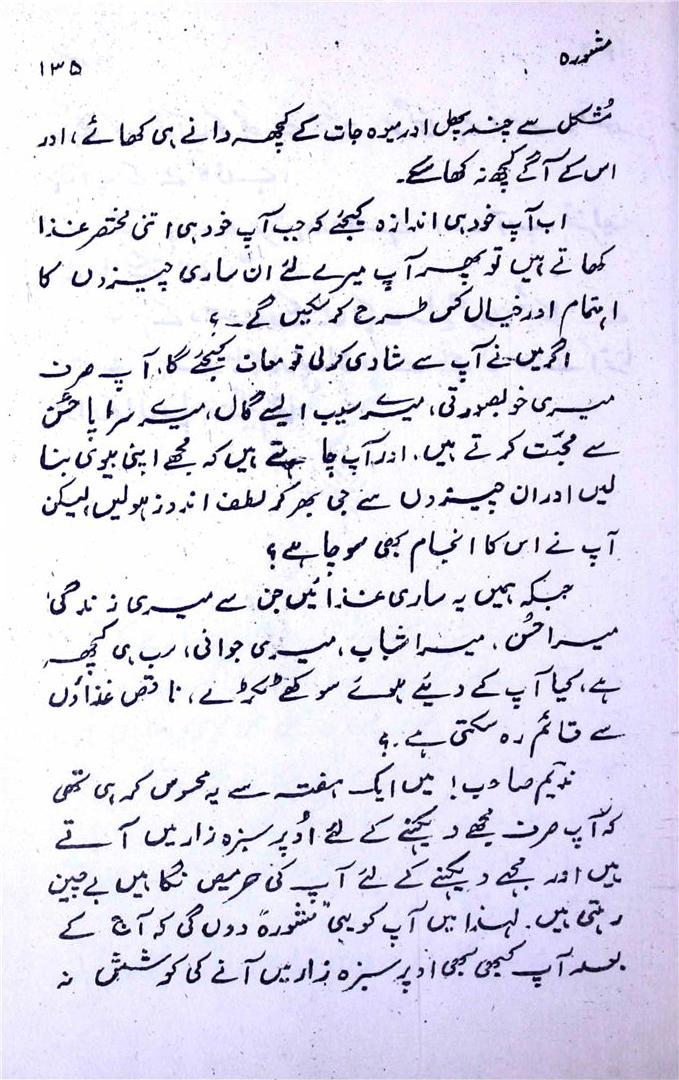 مشورہ
۱۳۵
مُشکل سے چند پھل اور میوہ جات کے کچھ دانے ہی کھائے، اور
اس کے آگے کچھ نہ کھا سکے۔
اب آپ خود ہی اندازہ کیجئے کہ جب آپ خود ہی اتنی مختصر غذا
کھاتے ہیں تو پھر آپ میرے لئے ان ساری چیزوں کا
اہتمام اور خیال کس طرح کر سکیں گے۔؟
اگر میں نے آپ سے شادی کر لی تو معاف کیجئے گا، آپ صرف
میری خوبصورتی، میرے سیب ایسے گال، میرے سراپا حُسن
سے محبّت کرتے ہیں. اور آپ چاہتے ہیں کہ مجھے اپنی بیوی بنا
لیں اور ان چیزوں سے جی بھر کر لطف اندوز ہولیں، لیکن
آپ نے اس کا انجام بھی سوچا ہے؟
جبکہ ہمیں یہ ساری غذائیں جن سے میری زندگی،
میرا حُسن، میرا شباب، میری جوانی، سب ہی کچھ
ہے، کیا آپ کے دیئے ہوئے سوکھے ٹکڑے، ناقص غذاؤں
سے قائم رہ سکتی ہے.؟
ندیم صاحب! میں ایک ہفتہ سے یہ محسوس کر رہی تھی
کہ آپ صرف مجھے دیکھنے کے لئے اُوپر سبزہ زار میں آتے
ہیں اور مجھے دیکھنے کے لئے آپ کی حریص نگاہیں بے چین
رہتی ہیں. لہٰذا میں آپ کو یہی "مشورہ" دوں گی کہ آج کے
بعد آپ کبھی بھی اوپر سبزہ زار میں آنے کی کوشش نہ